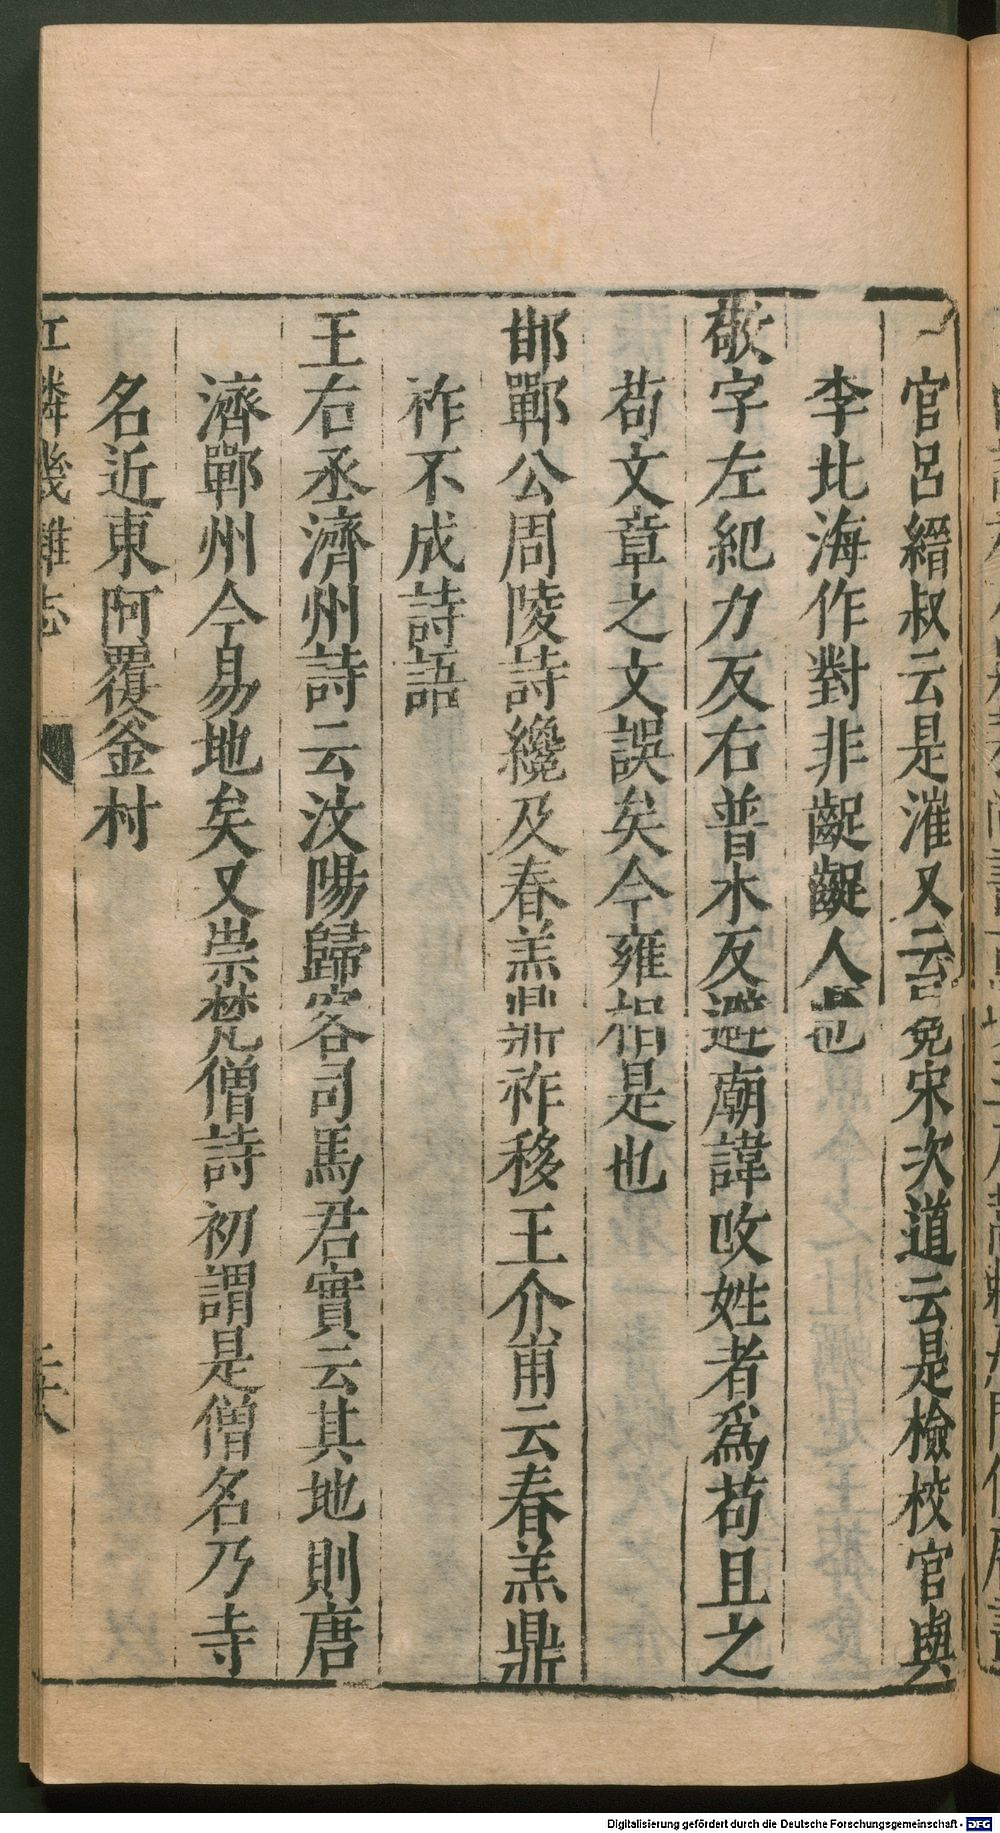 官呂縉叔云是漼又云台免宋次道云是檢校官與
李北海作對非齪齪人也
敬字左紀力反右普木反避廟諱改姓者爲苟且之
苟文章之文誤矣今雍相是也
邯鄲公周陵詩纔及春羔鼎祚移王介甫云春羔鼎
祚不成詩語
王右丞濟州詩云汶陽歸客司馬君實云其地則唐
濟鄆州今易地矣又崇梵僧詩初謂是僧名乃寺
名近東阿覆釜村
江鄰幾雜志
Digitalisierung gefördert durch die Deutsche Forschungsgemeinschaft - DFG